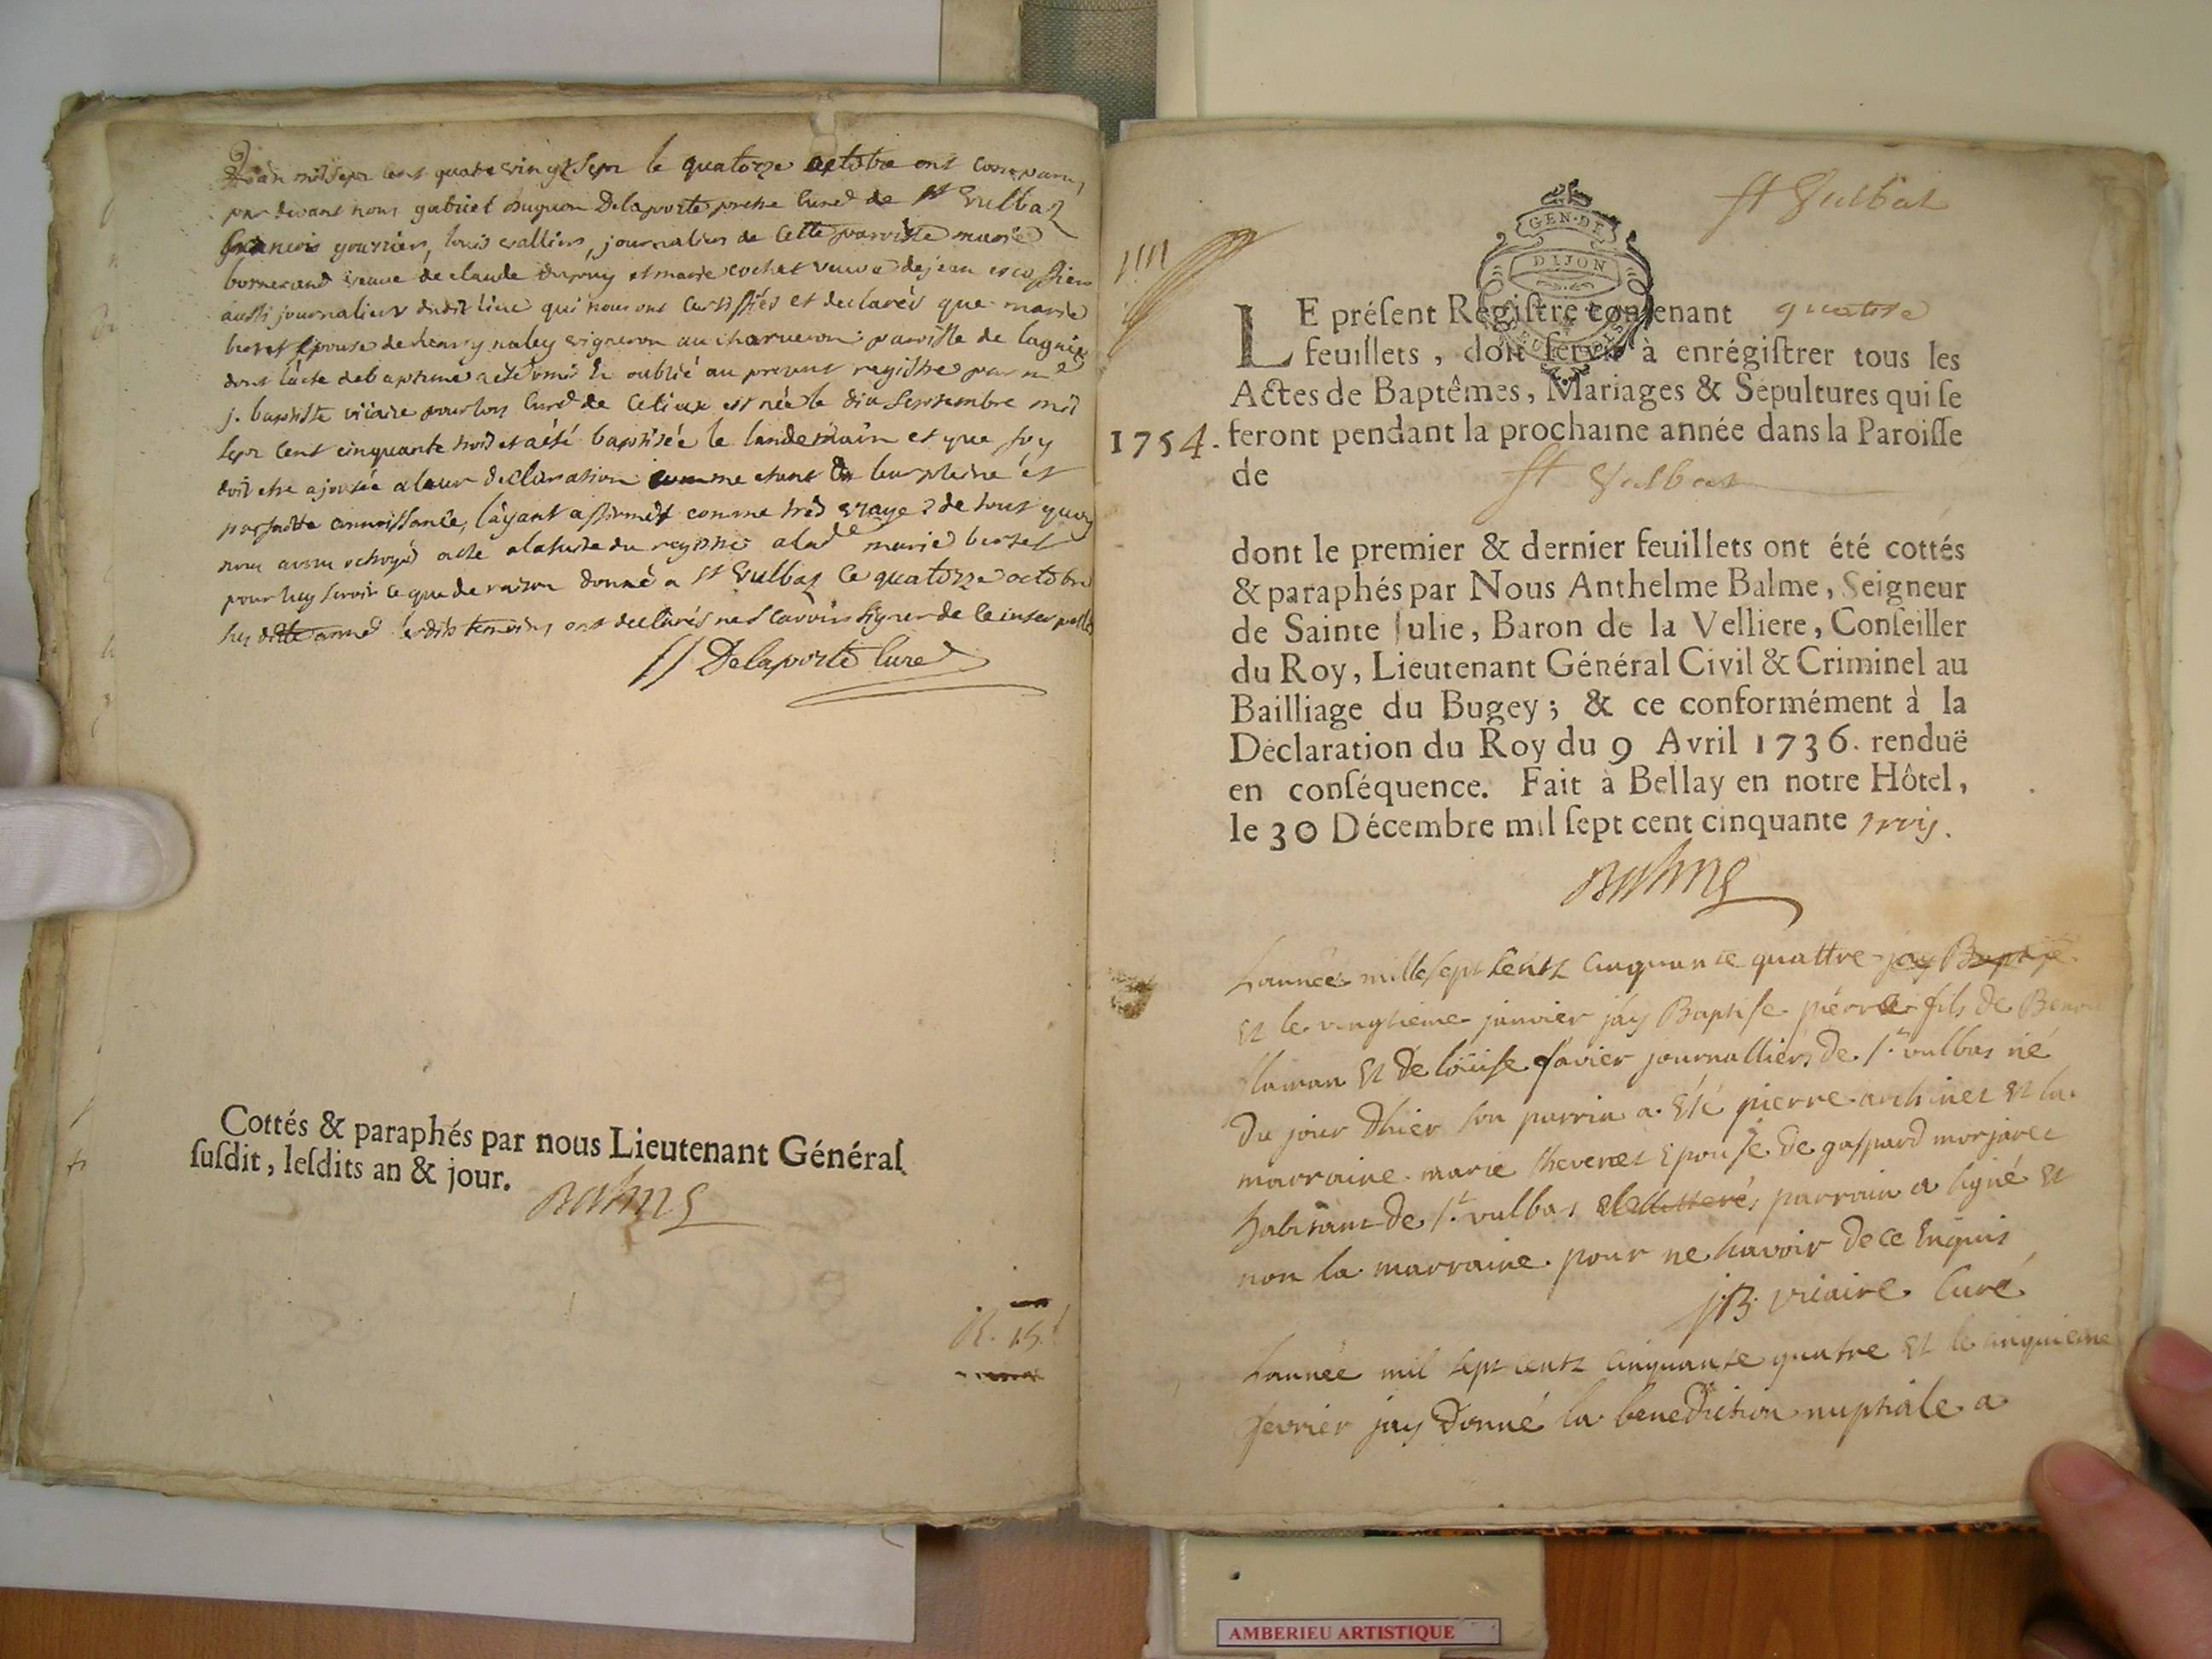 L'an mil sept cent quatre vingt sept le quatorze octobre ont comparu,
par devant nous gabriel huguon Delaporte pretre Curé de st Vulbaz
françois gourrier, louis vallier, journaliers de Cette paroisse marie
veuve de claude dupuy et marie cochet veuve de jean
aussi journalier dudit lieu qui nous ont certiffiés et declarés que marie
berset Epouse de henry naley vigneron au charveron paroisse de lagnieu
dont l'acte de baptême a été omis Et oublié au present registre par m.
j. baptiste viciaire pour lors Curé de Ce lieux est née le dix septembre mil
sept cent cinquante trois et a été baptisée le landemain et que foy
doit etre ajoutée a leur declaration comme etant de leur pleine et
parfaitte connoissance, l'ayant affirmés comme très vraye de tout quoy
nous avons octroyé acte a la suite du registre a lade marie berset
pour luy servir ce que de raison donné a st Vulbaz Ce quatorze octobre
susditte année lesdits temoins ont declarés ne scavoir signer de Ce interpellés
Delaporte Curé
Cottés & paraphés par nous Lieutenant Général
susdit, lesdits an & jour.
Balme
15.
st Vulbas
GEN·DE
DIJON
LE présent Registre contenant quatre
feuillets, doit servir à enrégistrer tous les
Actes de Baptêmes, Mariages & Sépultures qui se
1754. feront pendant la prochaine année dans la Paroisse
de st Vulbas
dont le premier & dernier feuillets ont été cottés
& paraphés par Nous Anthelme Balme, Seigneur
de Sainte Julie, Baron de la Velliere, Conseiller
du Roy, Lieutenant Général Civil & Criminel au
Bailliage du Bugey; & ce conformément à la
Déclaration du Roy du 9 Avril 1736. renduë
en conséquence. Fait à Bellay en notre Hôtel,
le 30 Décembre mil sept cent cinquante trois.
Balme
L'année mille sept centz cinquante quattre jay Baptisé
Et le vingtieme janvier jay Baptisé pierre fils de
laman Et de loüise favier journalliers de st. vulbas né
du jour d'hier son parrin a Eté pierre archinet Et la
marraine marie thevenet Epouse de gaspard morjaret
habitant de st. vulbas parrain a signé Et
non la marraine pour ne scavoir de ce Enquis
j.B. viciaire Curé
L'année mil sept centz cinquante quatre Et le cinquieme
fevrier jay donné la benediction nuptiale a
AMBERIEU ARTISTIQUE